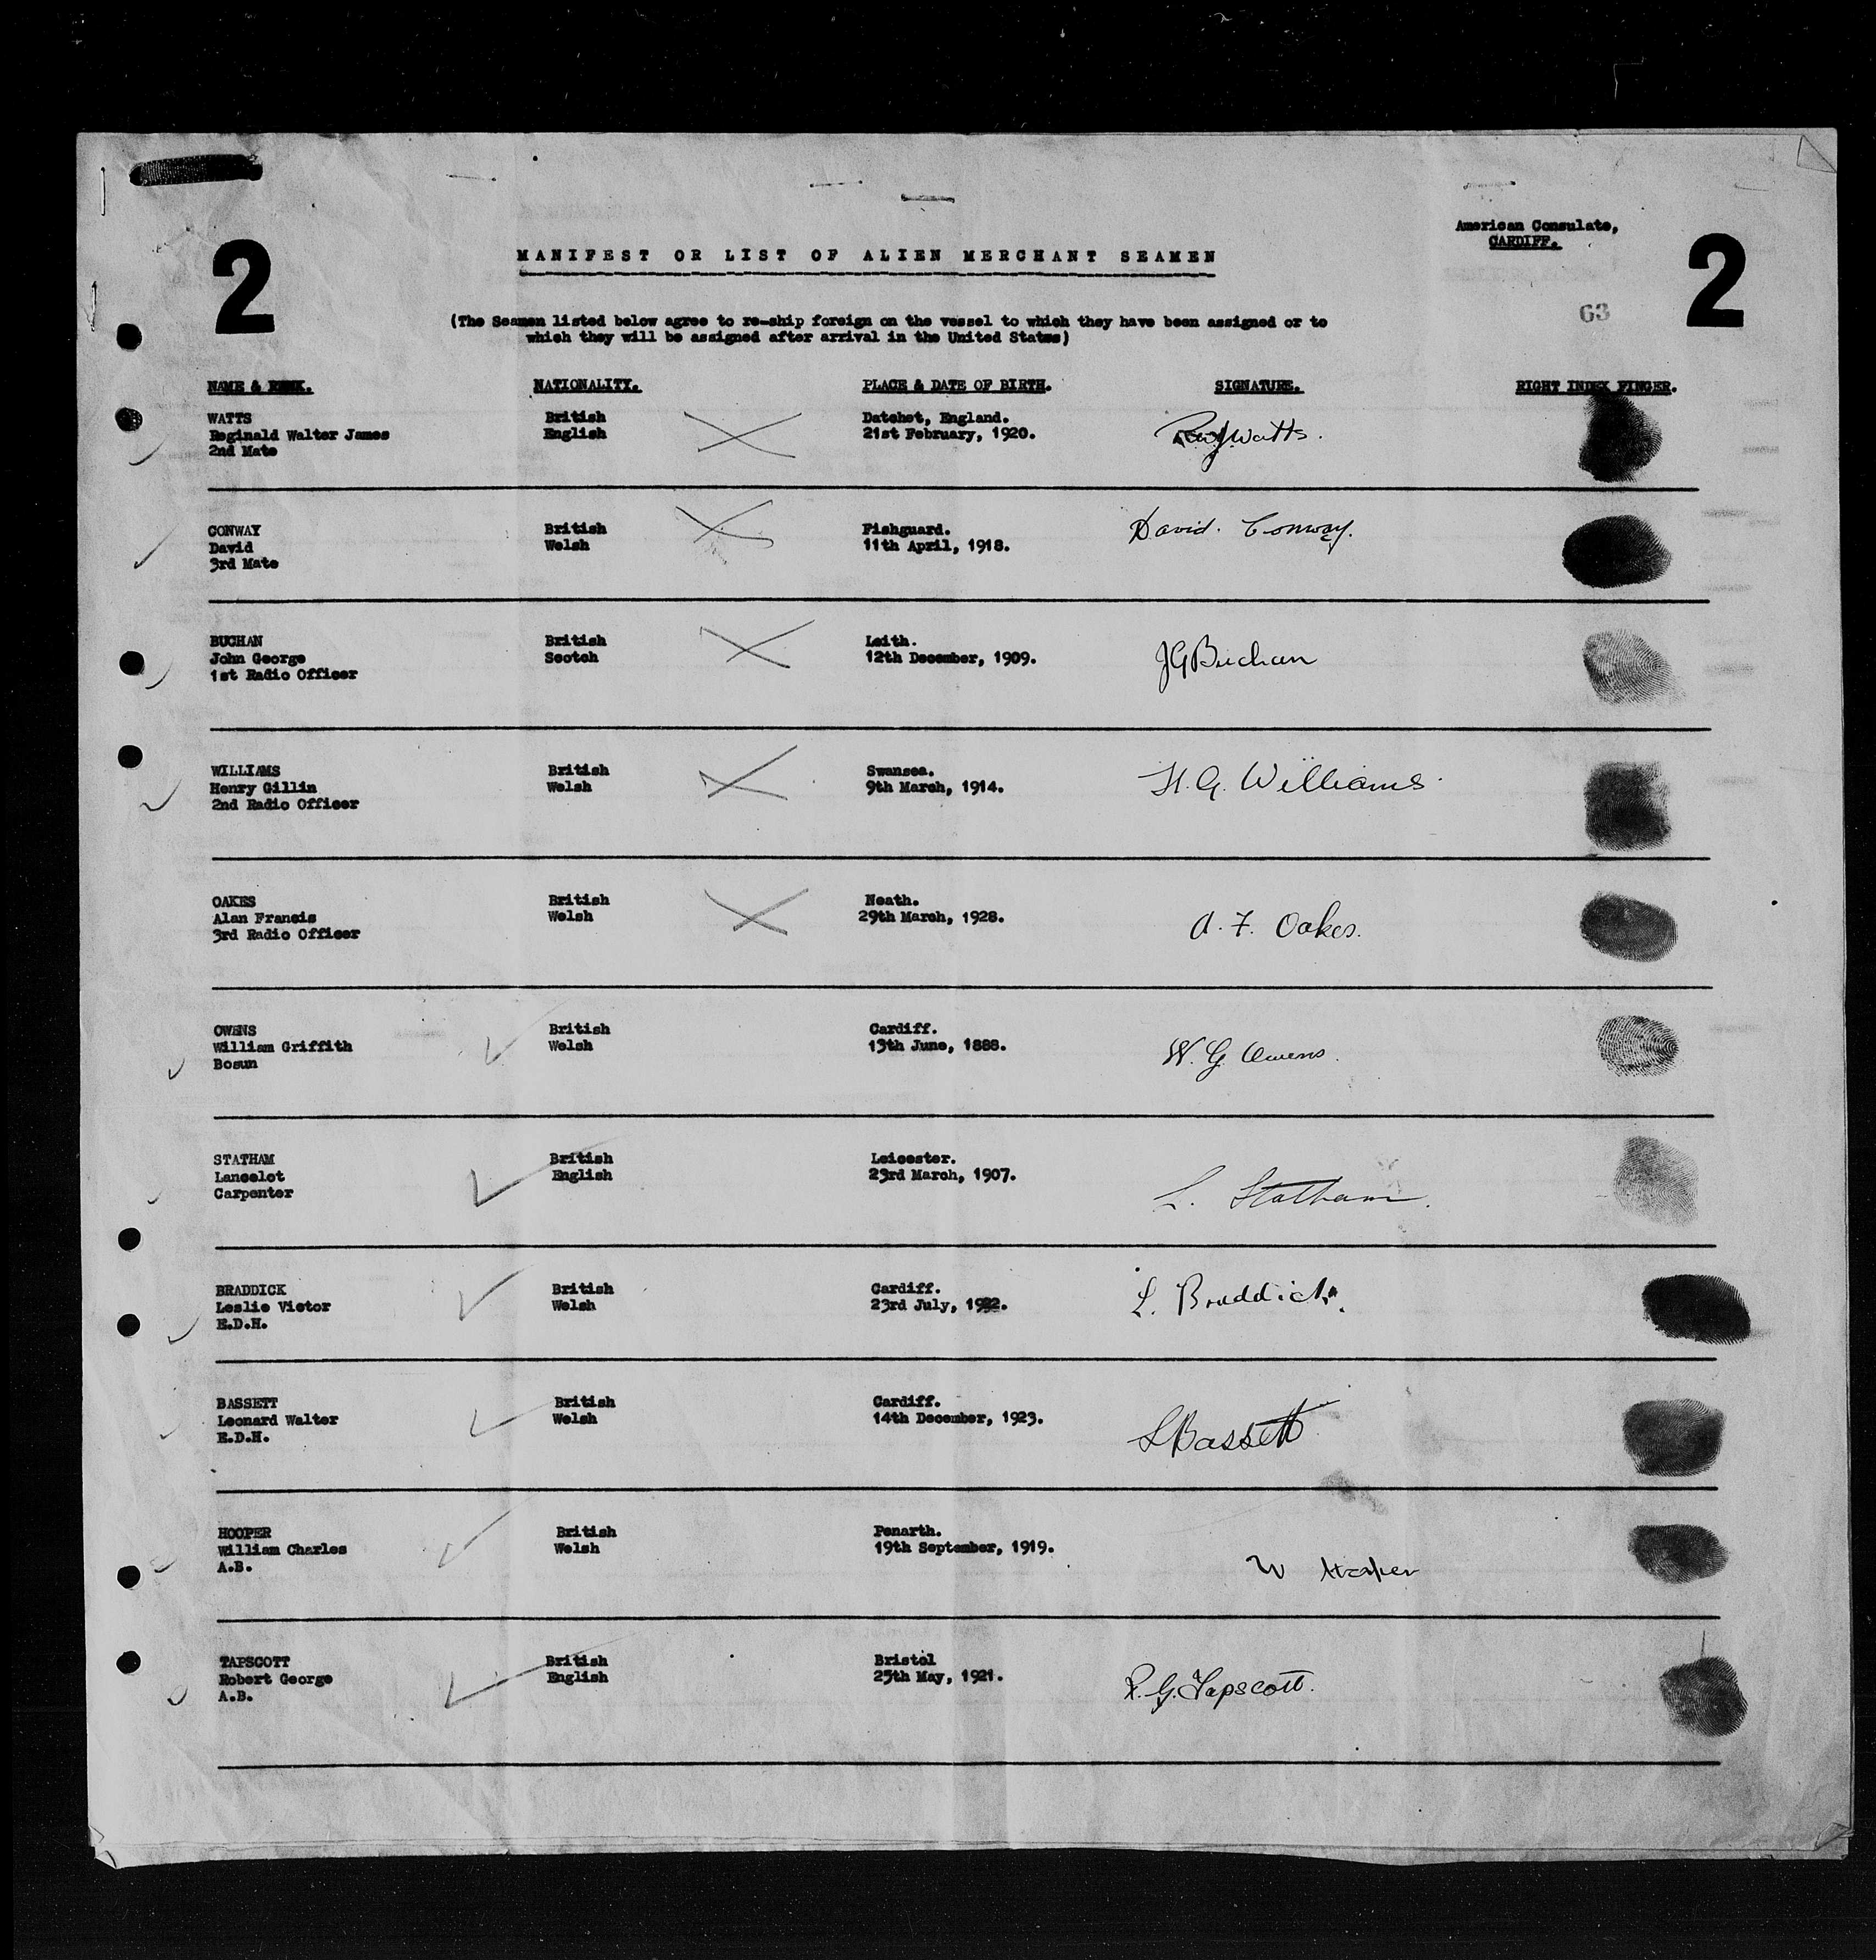 American Consulate,
CARDIFF.
2
2
MANIFEST OR LIST OF ALIEN MERCHANT SEAMEN
63
(The Seamen listed below agree to re-ship foreign on the vessel to which they have been assigned or to
which they will be assigned after arrival in the United States)
NAME & RANK. NATIONALITY. PLACE & DATE OF BIRTH. SIGNATURE. RIGHT INDEX FINGER.
WATTS British Datchet, England.
Reginald Walter James English 21st February, 1920. R.W.J. Watts.
2nd Mate
CONWAY British Fishguard. David. Conway.
David Welsh 11th April, 1918.
3rd Mate
BUCHAN British Leith.
John George Scotch 12th December, 1909. JGBuchan
1st Radio Officer
WILLIAMS British Swansea.
Henry Gillin Welsh 9th March, 1914. H. G. Williams.
2nd Radio Officer
OAKES British Neath.
Alan Francis Welsh 29th March, 1928. A. F. Oakes.
3rd Radio Officer
OWENS British Cardiff.
William Griffith Welsh 13th June, 1888. W. G. Owens.
Bosun
STATHAM British Leicester.
Lancelot English 23rd March, 1907. L. Statham.
Carpenter
BRADDICK British Cardiff.
Leslie Victor Welsh 23rd July, 1922. L. Braddick.
E.D.H.
BASSETT British Cardiff.
Leonard Walter Welsh 14th December, 1923. LBassett
E.D.H.
HOOPER British Penarth.
William Charles Welsh 19th September, 1919. W Hooper
A.B.
TAPSCOTT British Bristol
Robert George English 25th May, 1921. R. G. Tapscott.
A.B.